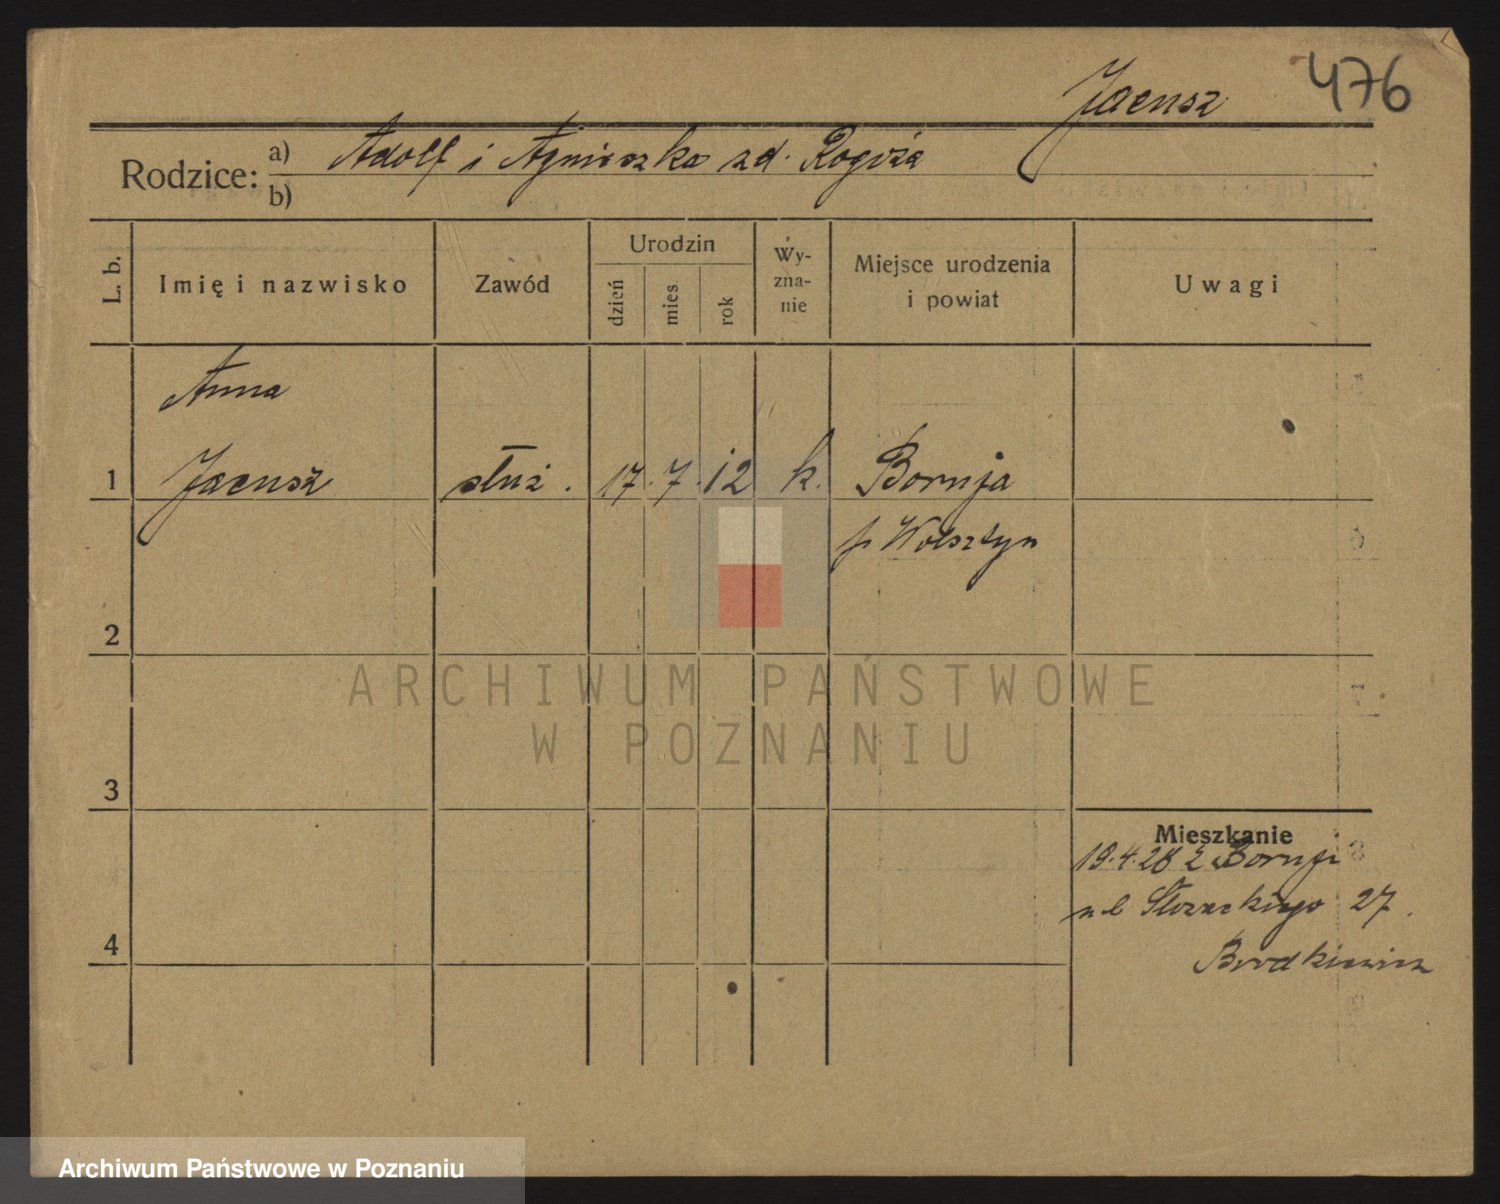 476
Jaensz
Rodzice: a) Adolf i Agnieszka zd. Rogoża
b)
L. b. Imię i nazwisko Zawód Urodzin dzień mies rok Wy-zna-nie Miejsce urodzenia i powiat Uwagi
Anna
1 Jaensz służ. 17. 7. 12 k. Boruja
p Wolsztyn
2
ARCHIWUM PAŃSTWOWE
W POZNANIU
3
Mieszkanie
19.4.28 z Boruji
ul Słowackiego 27.
4
Brodkiewicz
Archiwum Państwowe w Poznaniu